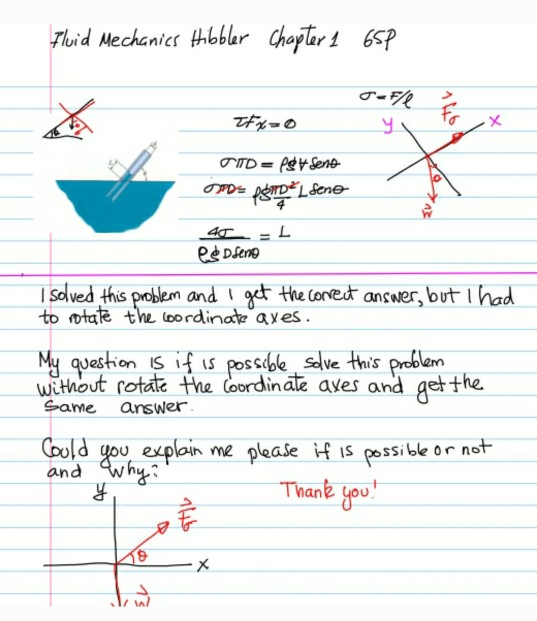 Fluid Mechanics Hibbler Chapter 1 65P
σ = F/l
ΣFx = 0
F⃗σ
y
x
σπD = ρg∀senθ
θ
σπD = ρg πD²/4 L senθ
W⃗
4σ/ρgDsenθ = L
I solved this problem and I get the correct answer, but I had
to rotate the coordinate axes.
My question is if is possible solve this problem
without rotate the coordinate axes and get the
same answer.
Could you explain me please if is possible or not
and why?
Thank you!
y
F⃗σ
θ
x
W⃗